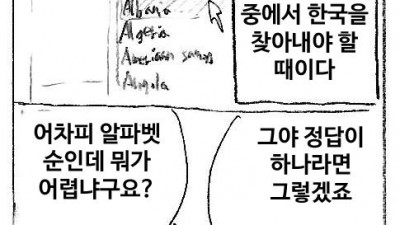 Albania
Algeria
American samoa
Angola
중에서 한국을
찾아내야 할
때이다
어차피 알파벳
순인데 뭐가
어렵냐구요?
그야 정답이
하나라면
그렇겠죠